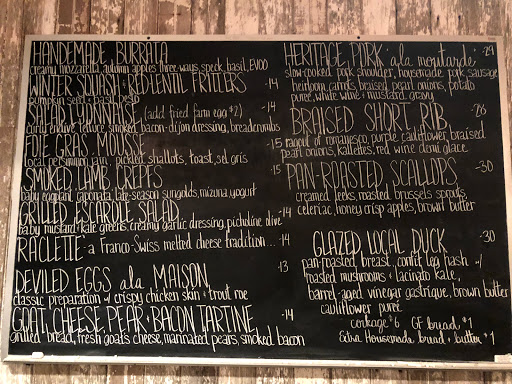 HANDMADE BURRATA
creamy mozzarella, autumn apples three ways, speck, basil, EVOO
WINTER SQUASH & RED LENTIL FRITTERS -14
pumpkin seed & basil pesto
SALAD LYONNAISE (add fried farm egg $2) -14
curly endive lettuce, smoked bacon-dijon dressing, breadcrumbs
FOIE GRAS MOUSSE -15
local persimmon jam, pickled shallots, toast, sel gris
SMOKED LAMB CREPES
baby eggplant, caponata, late-season sungolds, mizuna, yogurt
GRILLED ESCAROLE SALAD -14
baby mustard & kale greens, creamy garlic dressing, picholine olive
RACLETTE - a Franco-Swiss melted cheese tradition... -14
DEVILED EGGS a la MAISON -13
classic preparation w/ crispy chicken skin & trout roe
GOAT CHEESE, PEAR & BACON TARTINE -14
grilled bread, fresh goat's cheese, marinated pears, smoked bacon
HERITAGE PORK "a la moutarde" -29
slow-cooked pork shoulder, housemade pork sausage
heirloom carrots, braised pearl onions, potato
puree, white wine & mustard gravy
BRAISED SHORT RIB -28
ragout of romanesco, purple cauliflower, braised
pearl onions, kalettes, red wine demi glace
PAN-ROASTED SCALLOPS -30
creamed leeks, roasted brussels sprouts,
celeriac, honey crisp apples, brown butter
GLAZED LOCAL DUCK -30
pan-roasted breast, confit leg hash w/
roasted mushrooms & lacinato kale,
barrel-aged vinegar gastrique, brown butter
cauliflower puree
corkage $6 GF bread $1
Extra Housemade bread & butter $1